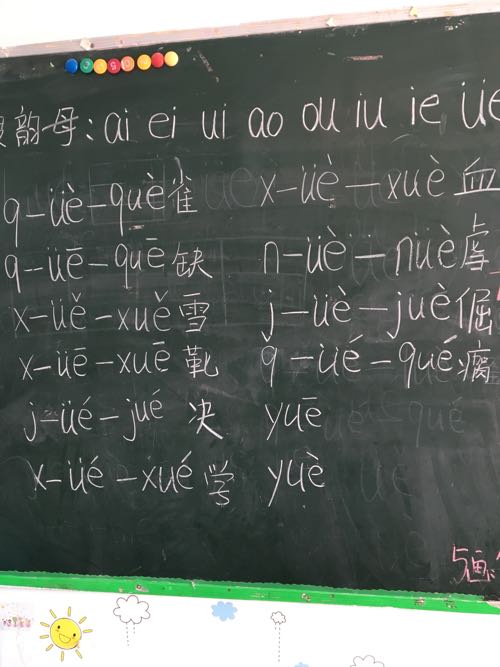 韵母:ai ei ui ao ou iu ie üe
q-üè-què雀 x-üè-xuè血
q-üē-quē缺 n-üè-nüè虐
x-üě-xuě雪 j-üè-juè倔
x-üē-xuē靴 q-üé-qué瘸
j-üé-jué 决 yuē
x-üé-xué学 yuè
5画